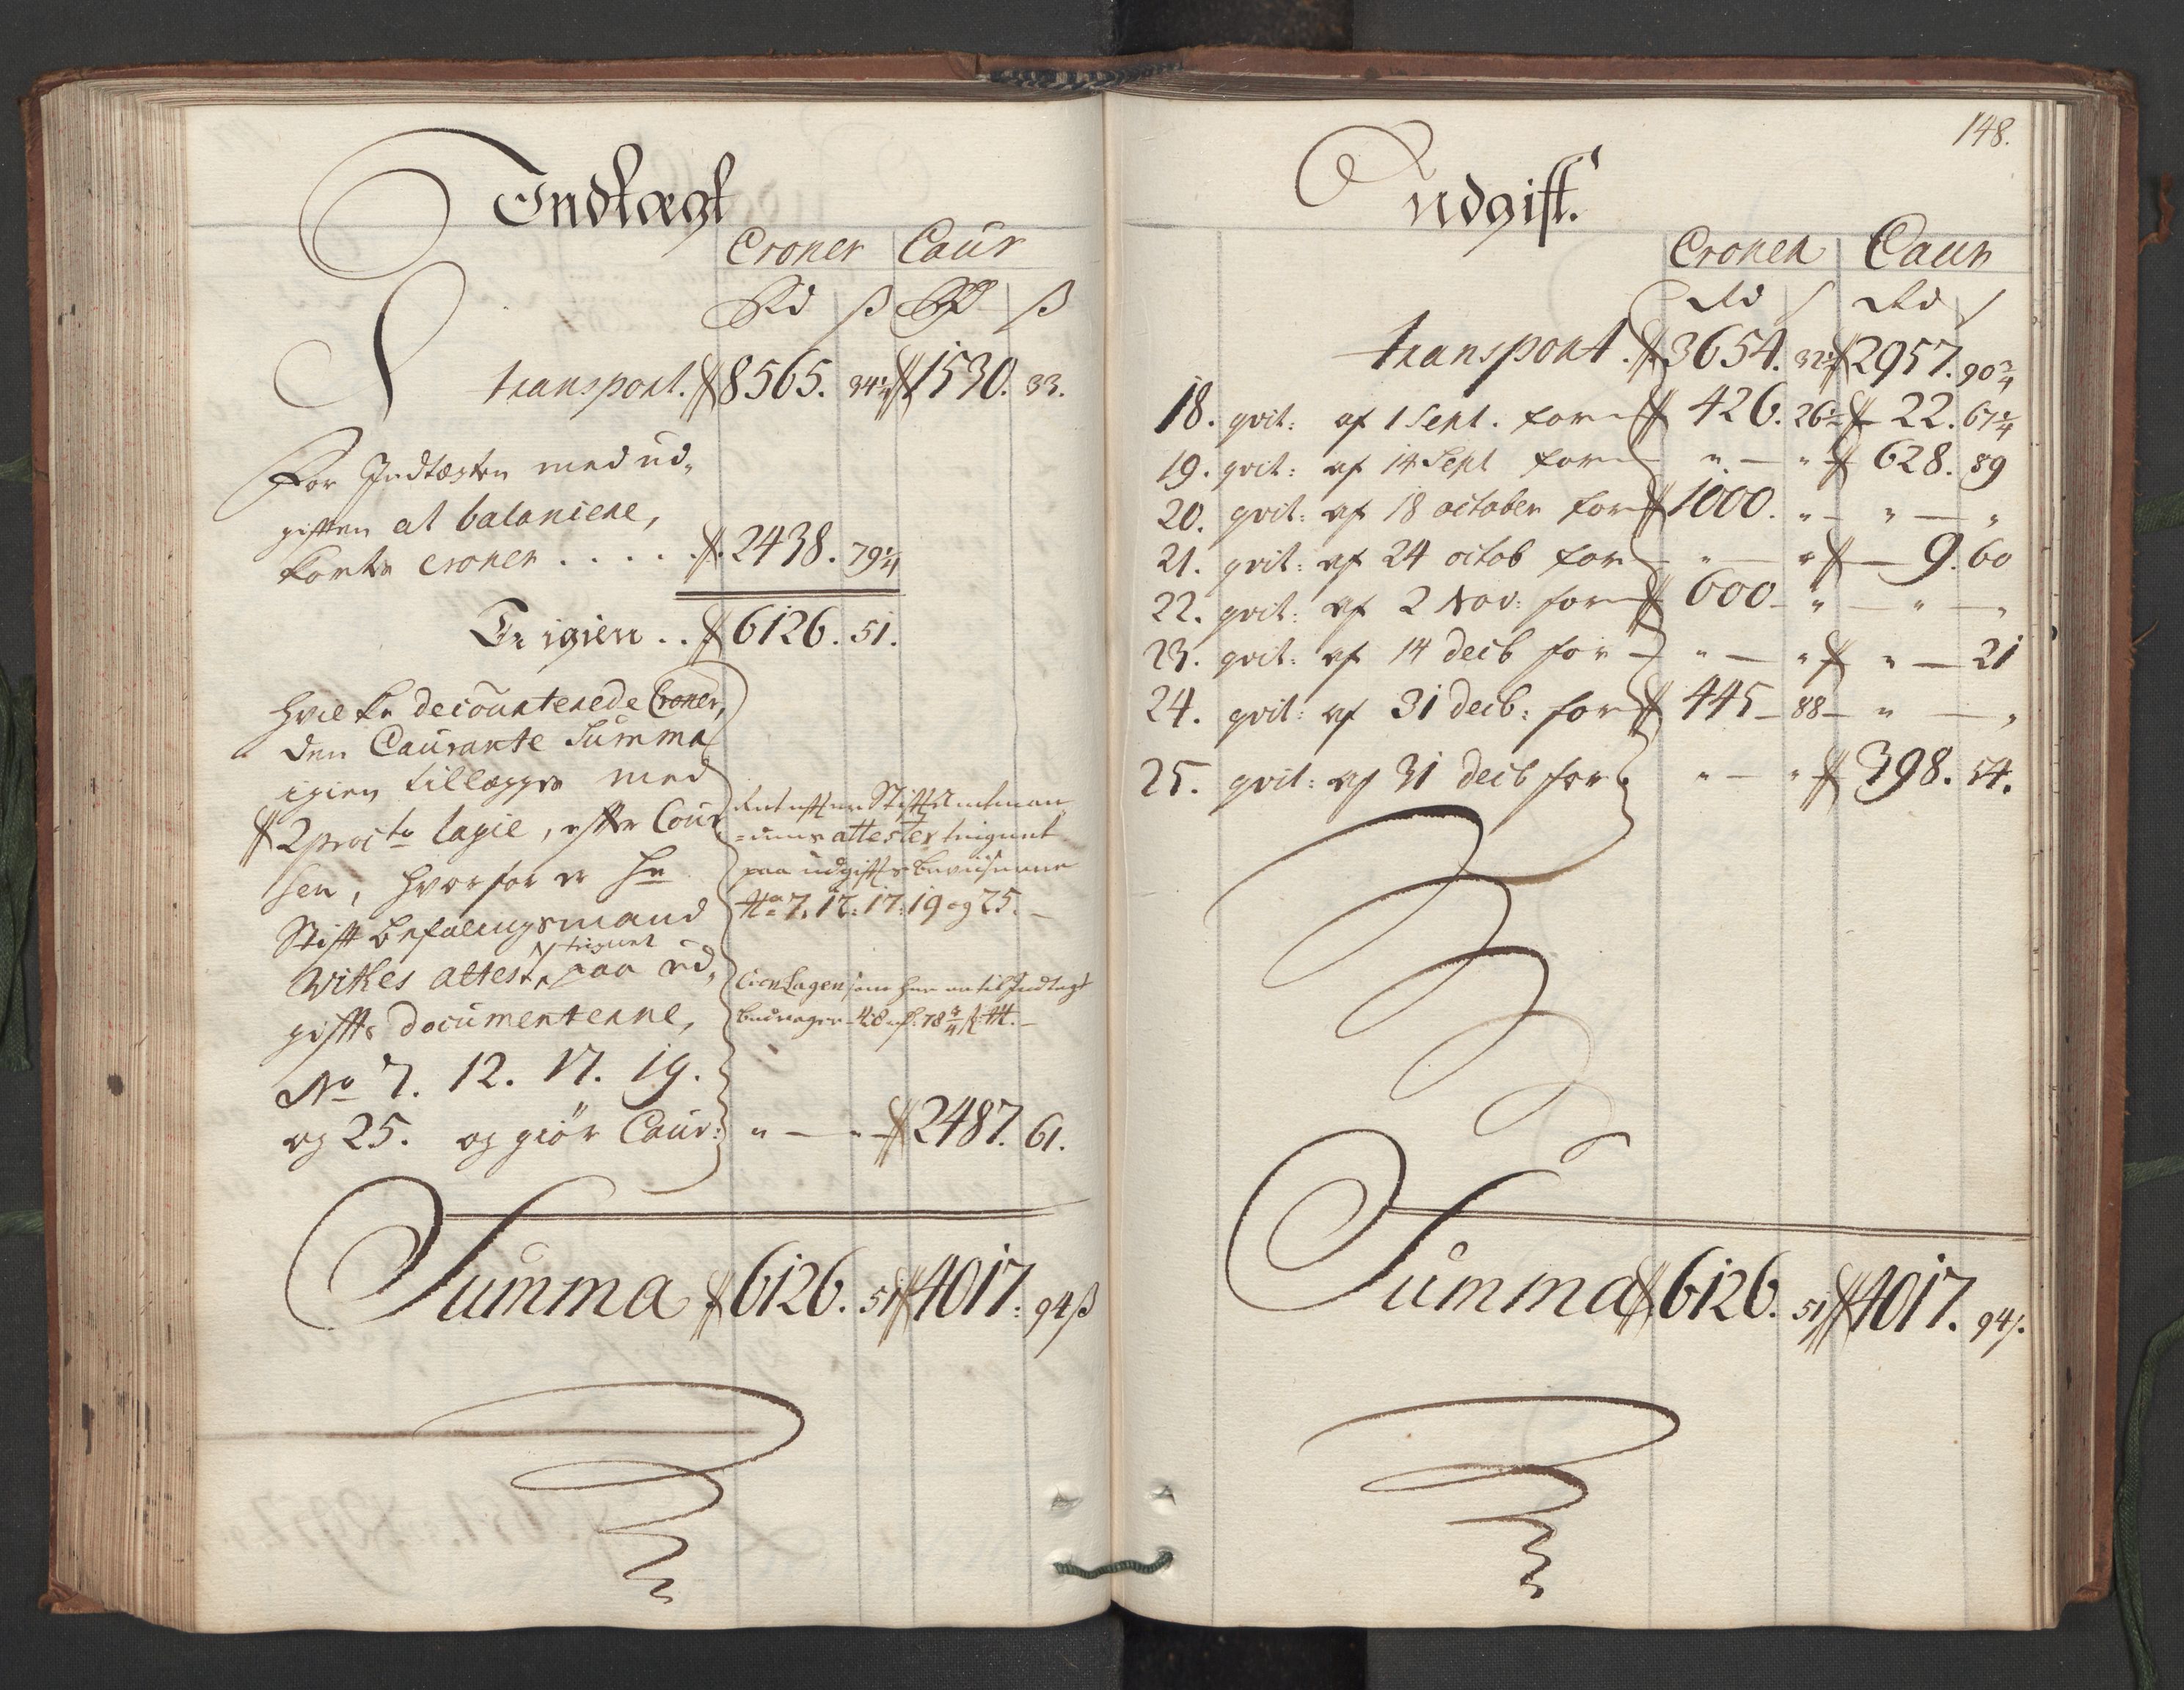 Indtægt
Croner Caur
Rd ß Rd ß
transport. 8565. 34¼ 1530. 33.
For Indtægten med ud,
giften at balanciere,
korte croner . . . . . 2438. 79¼
Er igien . . 6126. 51.
Hvilke decourterede Croner,
den Caurante Summa
igien tillægges med
2 procto lagie, efter Cour
sen, hvorfor er Hr
Stift Befalingsmand
Witkes attest, tegnet paa ud,
giffts documenterne,
No 7. 12. 17. 19.
og 25. og giör Caur: " — " — 2487. 61.
Stiftamtmandens attester teignet
paa udgifts beviiserne
No 7. 12: 17: 19 og 25. —
Summa 6126. 51 4017: 94 ß
148.
Udgift.
Croner Caur
Rd ß Rd ß
transport. 3654. 32 2957. 90¾
18. qvit: af 1 Sept. for 426. 26 22. 67¼
19. qvit: af 14 Sept for " — " 628. 89
20. qvit: af 18 october for 1000. " — " — "
21. qvit: af 24 octob for " — " — 9. 60
22. qvit: af 2 Nov: for 600 — " — " — "
23. qvit: af 14 decb for — " — " " — 21
24. qvit: af 31 decb: for 445 — 88 — " — "
25. qvit: af 31 decb for " — " 398. 54.
Summa 6126. 51 4017. 94 ß.